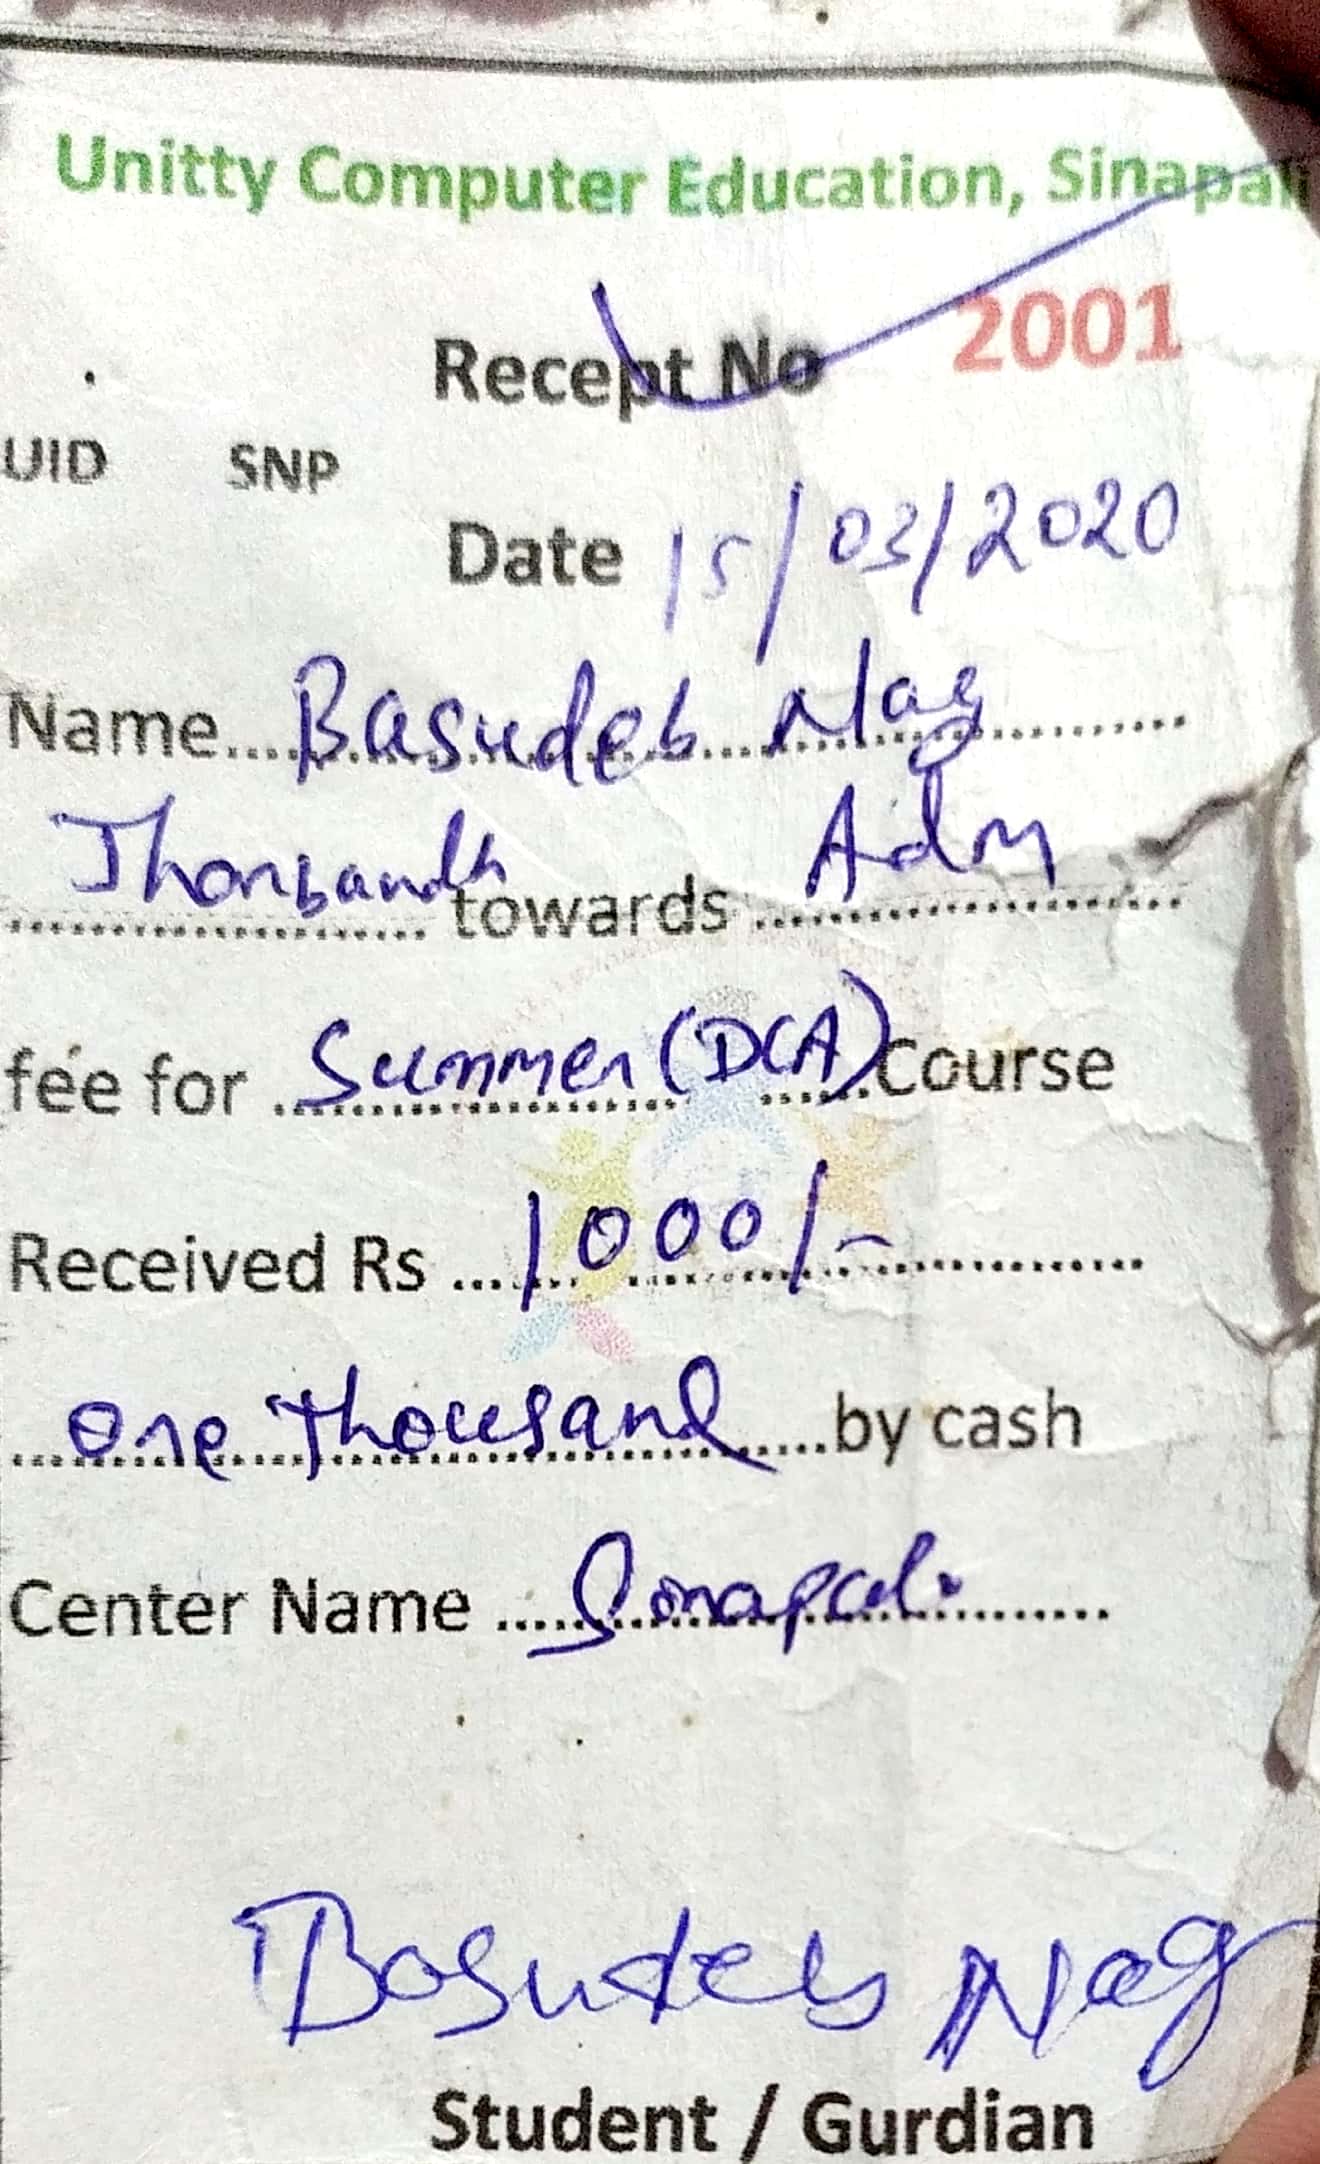 Unitty Computer Education, Sinapali
Recept No 2001
UID SNP
Date 15/03/2020
Name....Basudeb Nag..........
Jhonbandh towards ....Adm
fee for ....Summer (DCA)....Course
Received Rs ....1000/-..........
....One Thousand.....by cash
Center Name ....Sinapali..........
Basudeb Nag
Student / Gurdian